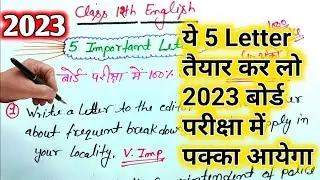 2023
Class 12th English
5 Important Let
बोर्ड परीक्षा में 100%
① Write a Letter to the editor
about frequent breakdow
in your locality. V. Imp
ये 5 Letter
तैयार कर लो
2023 बोर्ड
परीक्षा में
पक्का आयेगा